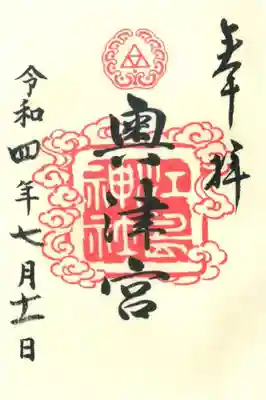 奉拝
奥津宮
江島
神社
令和四年七月十一日